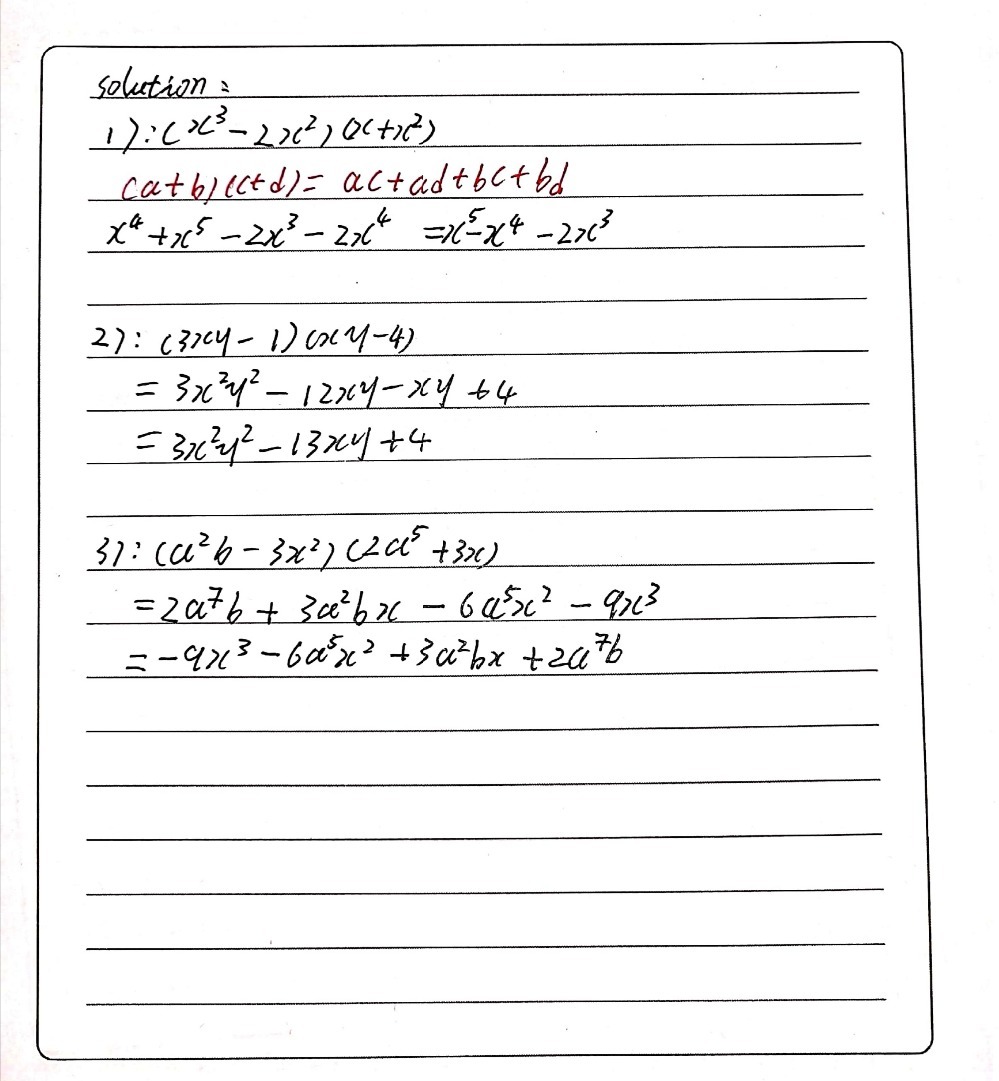 solution:
1):(x³-2x²)(x+x²)
(a+b)(c+d)= ac+ad+bc+bd
x⁴+x⁵-2x³-2x⁴ =x⁵-x⁴-2x³
2): (3xy-1)(xy-4)
= 3x²y²-12xy-xy+4
= 3x²y²-13xy+4
3): (a²b-3x²)(2a⁵+3x)
=2a⁷b+3a²bx-6a⁵x²-9x³
=-9x³-6a⁵x²+3a²bx+2a⁷b